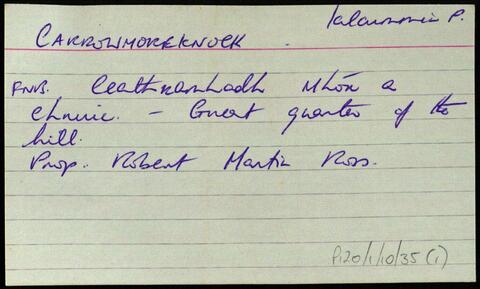 Kilcummin P.
CARROWMOREKNOCK
FNB. Ceathramhadh Mhór a
chnuic. - Great quarter of the
hill.
Prop. Robert Martin Ross.
P120/1/10/35 (1)